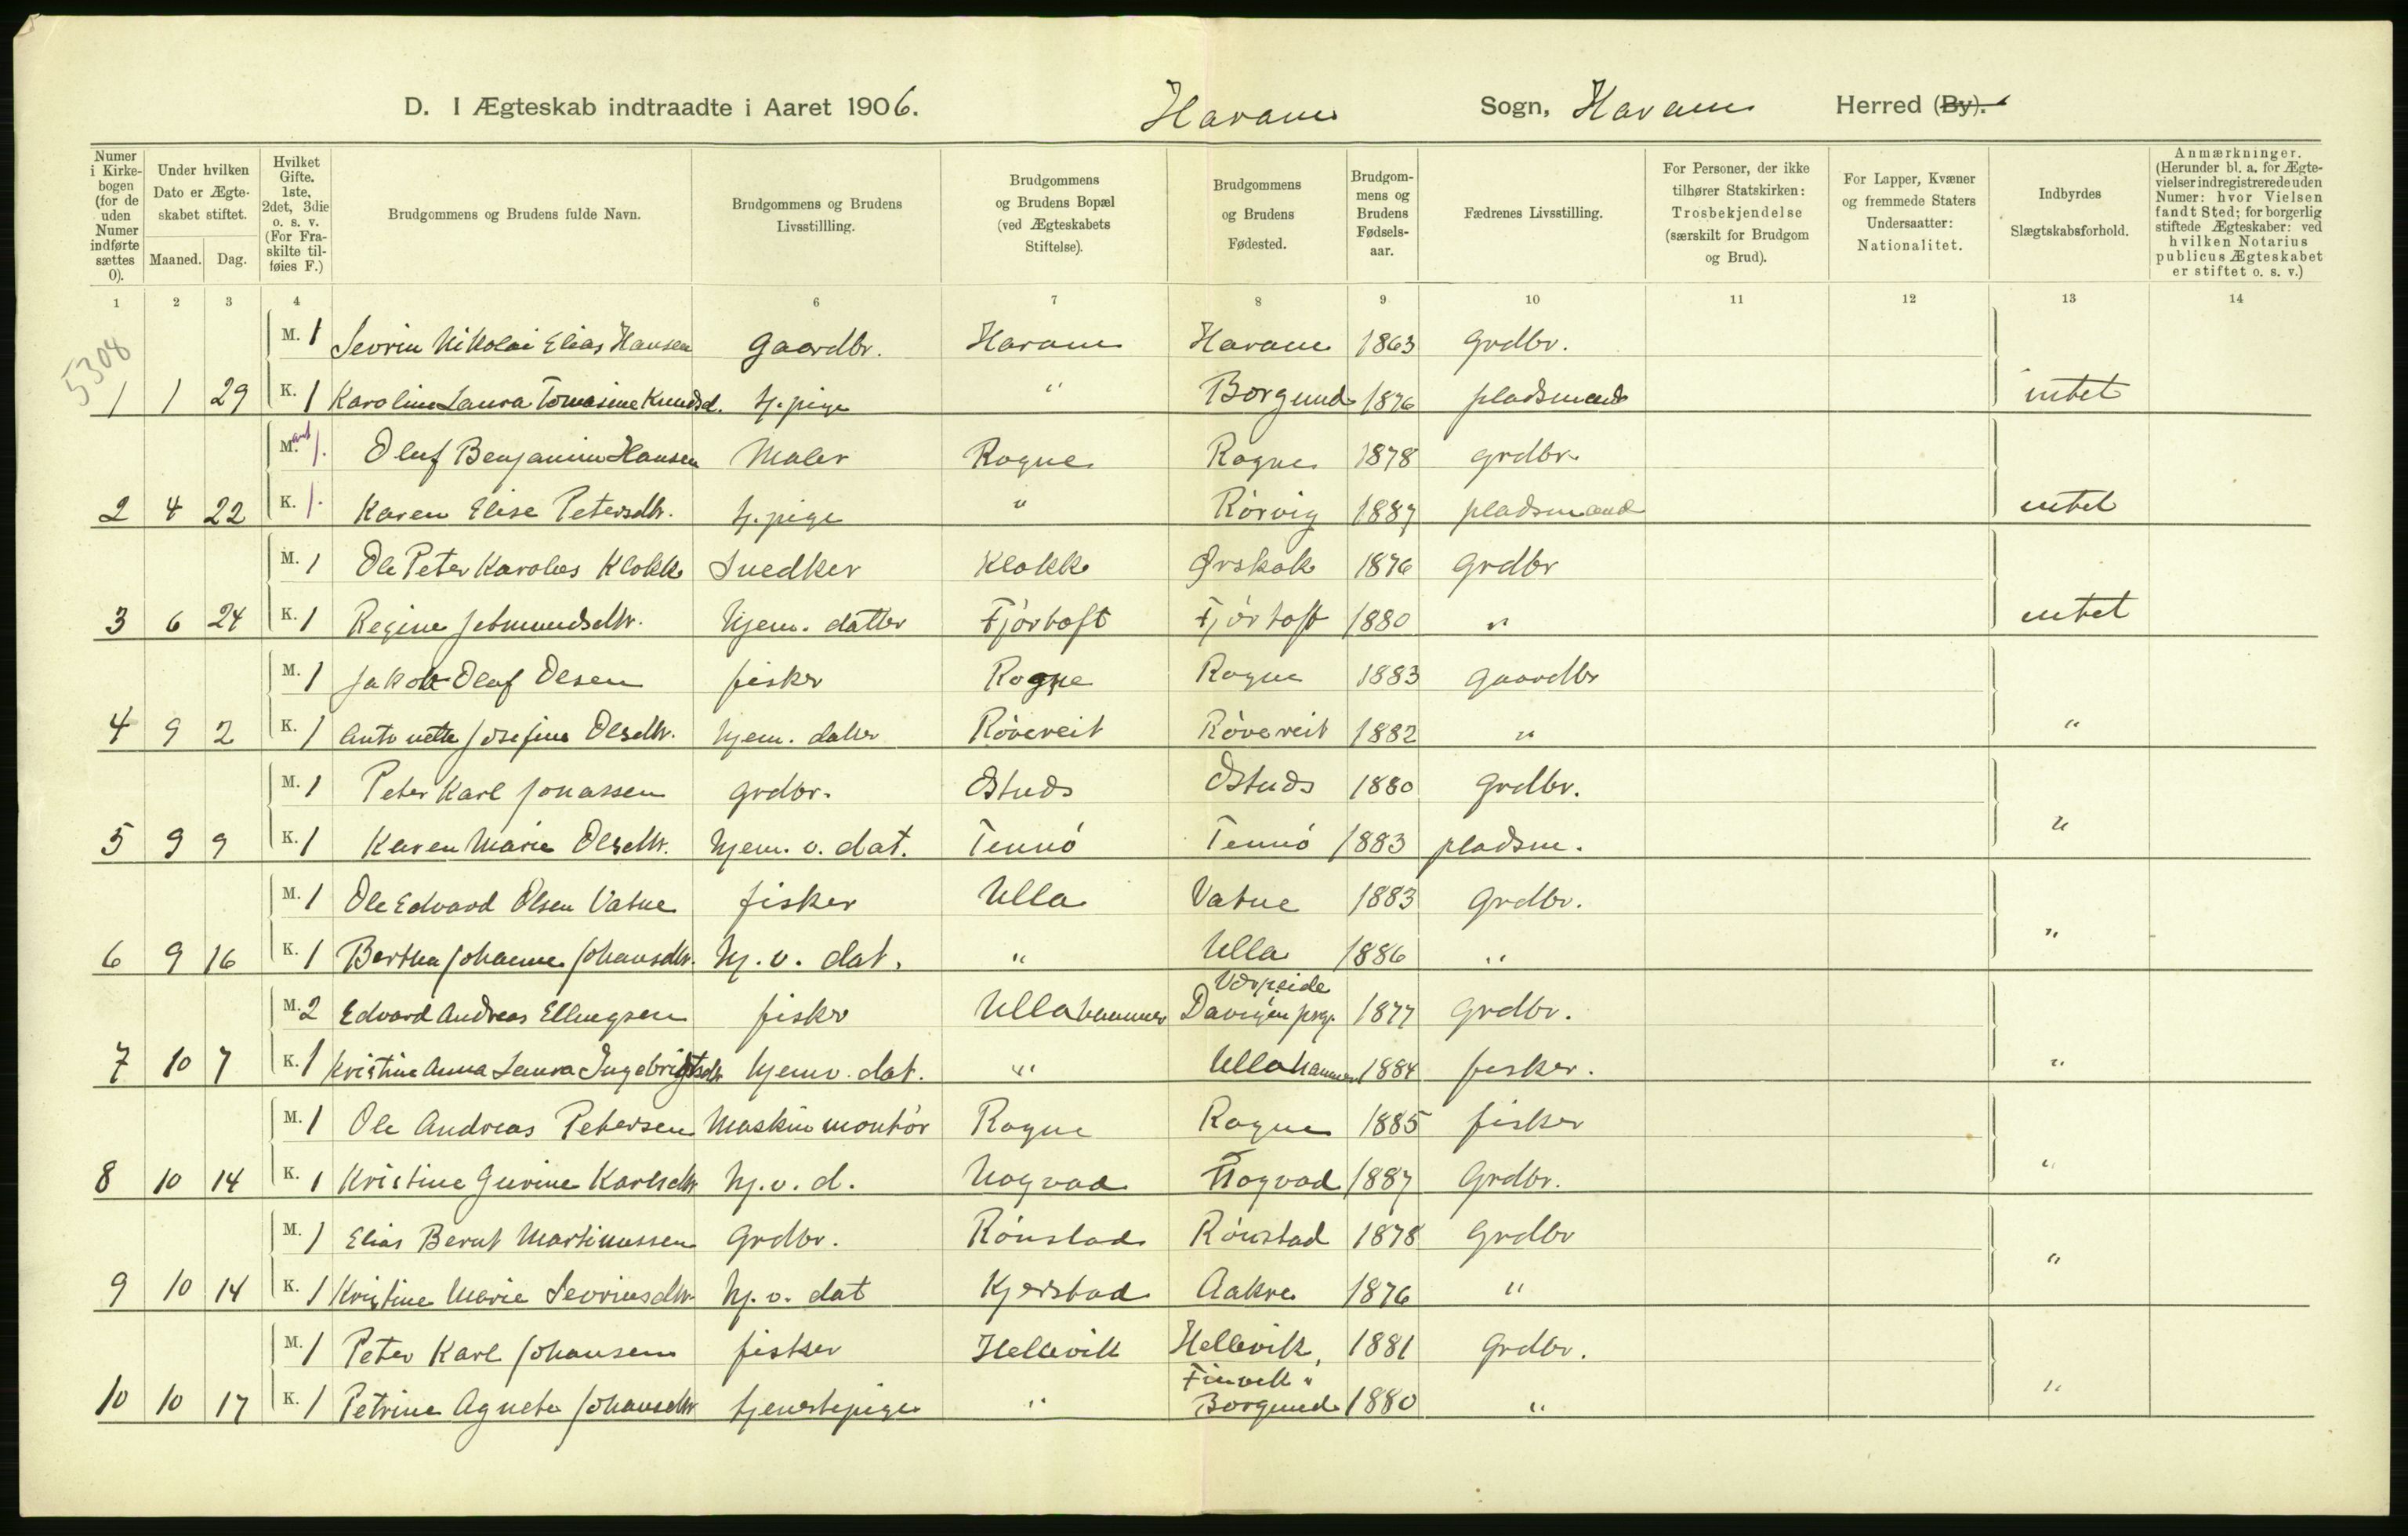 D. I Ægteskab indtraadte i Aaret 1906. Haram Sogn, Haram Herred (By).
Numer i Kirkebogen (for de uden Numer indførte sættes 0).
Under hvilken Dato er Ægteskabet stiftet.
Maaned. Dag.
Hvilket Gifte. 1ste, 2det, 3die o. s. v. (For Fraskilte tilføies F.)
Brudgommens og Brudens fulde Navn.
Brudgommens og Brudens Livsstillling.
Brudgommens og Brudens Bopæl (ved Ægteskabets Stiftelse).
Brudgommens og Brudens Fødested.
Brudgommens og Brudens Fødselsaar.
Fædrenes Livsstilling.
For Personer, der ikke tilhører Statskirken: Trosbekjendelse (særskilt for Brudgom og Brud).
For Lapper, Kvæner og fremmede Staters Undersaatter: Nationalitet.
Indbyrdes Slægtskabsforhold.
Anmærkninger. (Herunder bl. a. for Ægtevielser indregistrerede uden Numer: hvor Vielsen fandt Sted; for borgerlig stiftede Ægteskaber: ved hvilken Notarius publicus Ægteskabet er stiftet o. s. v.)
1 2 3 4 6 7 8 9 10 11 12 13 14
5308
M. 1 Sevrin Nikolai Elias Hansen Gaardbr. Haram Haram 1863 Grdbr.
1 1 29 K. 1 Karoline Laura Tomasine Knudsd. tj. pige " Borgund 1876 pladsmand intet
M. 1. Oluf Benjamin Hansen Maler Rogne Rogne 1878 grdbr.
2 4 22 K. 1. Karen Elise Petersdtr. tj. pige " Rörvig 1887 pladsmand intet
M. 1 Ole Peter Karolus Klokk Snedker Klokk Ørskok 1876 Grdbr
3 6 24 K. 1 Regine Jetmundsdtr. hjem. datter Fjörtoft Fjörtoft 1880 " intet
M. 1 Jakob Olaf Olsen fisker Rogne Rogne 1883 Gaardbr
4 9 2 K. 1 Antonette Josefine Olsdtr. hjem. datter Rövereit Rövereit 1882 " "
M. 1 Peter Karl Jonassen grdbr. Östnäs Östnäs 1880 Grdbr.
5 9 9 K. 1 Karen Marie Olsdtr. hjem. v. dat. Tennö Tennö 1883 pladsm. "
M. 1 Ole Edvard Olsen Vatne fisker Ulla Vatne 1883 Grdbr.
6 9 16 K. 1 Bertha Johanne Johansdtr. hj. v. dat. " Ulla 1886 " "
M. 2 Edvard Andreas Ellingsen fisker Ullahammer Davigen prgj. 1877 Grdbr.
7 10 7 K. 1 Kristine Anna Laura Ingebrigtsdtr hjemv. dat. " Ullahammer 1884 fisker. "
M. 1 Ole Andreas Petersen Maskinmontör Rogne Rogne 1885 fisker
8 10 14 K. 1 Kristine Gurine Karlsdtr hj. v. d. Hogvad Hogvad 1887 Grdbr. "
M. 1 Elias Bernt Martinussen Grdbr. Rönstad Rönstad 1878 Grdbr
9 10 14 K. 1 Kristine Marie Sevrinsdtr. hj. v. dat Kjerstad Aakre 1876 " "
M. 1 Peter Karl Johansen fisker Hellevik Hellevik, 1881 Grdbr.
10 10 17 K. 1 Petrine Agnete Johansdtr tjenestepige " Borgund 1880 " "